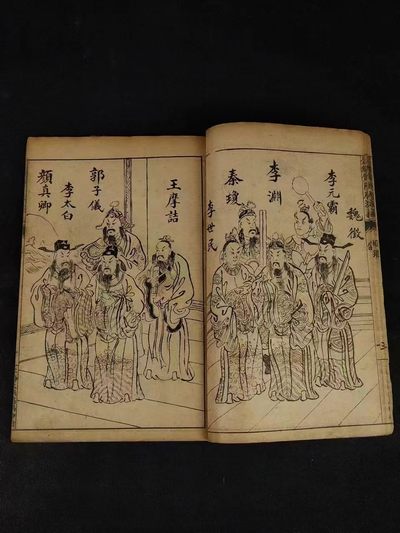 魏徵
李元霸
李淵
秦瓊
李世民
王摩詰
郭子儀
李太白
顏真卿